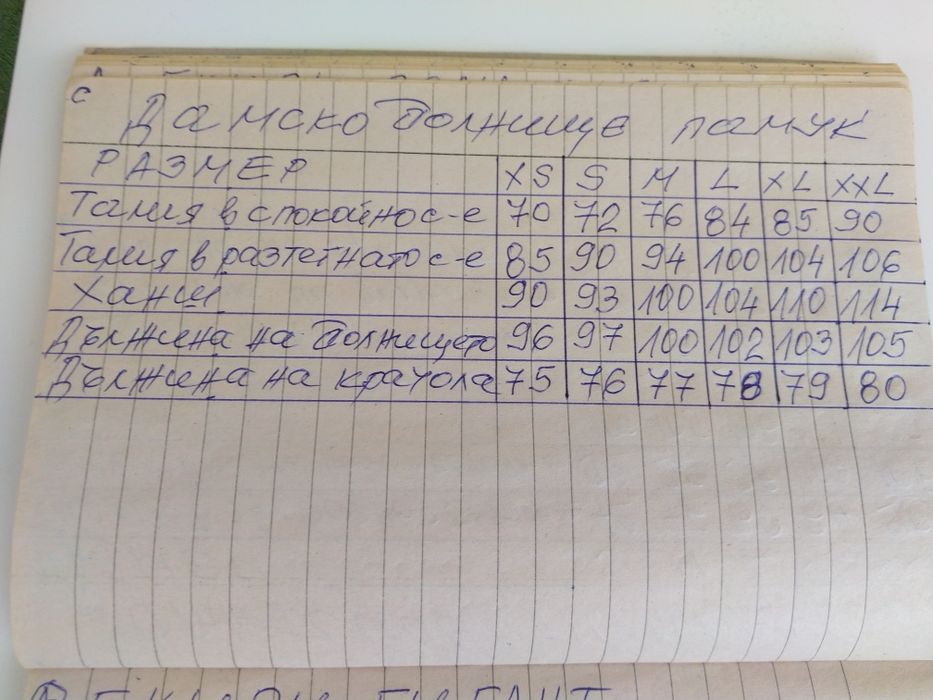 с
Дамско долнище памук
РАЗМЕР XS S M L XL XXL
Талия в спокойно с-е 70 72 76 84 85 90
Талия в разтегнато с-е 85 90 94 100 104 106
Ханш 90 93 100 104 110 114
Дължена на долнището 96 97 100 102 103 105
Дължена на крачола 75 76 77 78 79 80